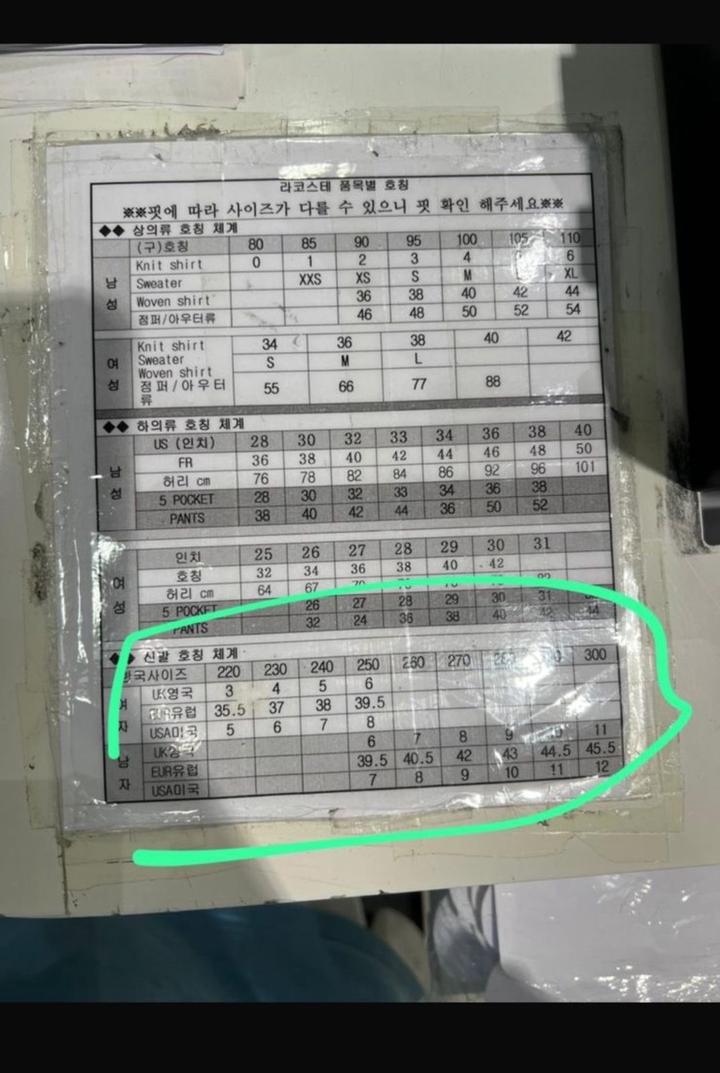 라코스테 품목별 호칭
※※핏에 따라 사이즈가 다를 수 있으니 핏 확인 해주세요※※
◆◆ 상의류 호칭 체계
(구)호칭 80 85 90 95 100 105 110
남성
Knit shirt 0 1 2 3 4 6
Sweater XXS XS S M XL
Woven shirt 36 38 40 42 44
점퍼/아우터류 46 48 50 52 54
여성
Knit shirt 34 36 38 40 42
Sweater S M L
Woven shirt
점퍼/아우터류 55 66 77 88
◆◆ 하의류 호칭 체계
남성
US (인치) 28 30 32 33 34 36 38 40
FR 36 38 40 42 44 46 48 50
허리 cm 76 78 82 84 86 92 96 101
5 POCKET 28 30 32 33 34 36 38
PANTS 38 40 42 44 36 50 52
여성
인치 25 26 27 28 29 30 31
호칭 32 34 36 38 40 42
허리 cm 64 67
5 POCKET 26 27 28 29 30 31
PANTS 32 24 36 38 40 42 44
신발 호칭 체계
한국사이즈 220 230 240 250 260 270 300
여자
UK영국 3 4 5 6
EUR유럽 35.5 37 38 39.5
USA미국 5 6 7 8
남자
UK영국 6 7 8 9 11
EUR유럽 39.5 40.5 42 43 44.5 45.5
USA미국 7 8 9 10 11 12